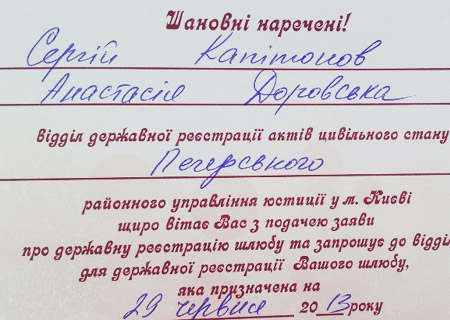 Шановні наречені!
Сергій Капітонов
Анастасія Доровська
відділ державної реєстрації актів цивільного стану
Печерського
районного управління юстиції у м. Києві
щиро вітає Вас з подачею заяви
про державну реєстрацію шлюбу та запрошує до відділ
для державної реєстрації Вашого шлюбу,
яка призначена на
29 червня 2013 року